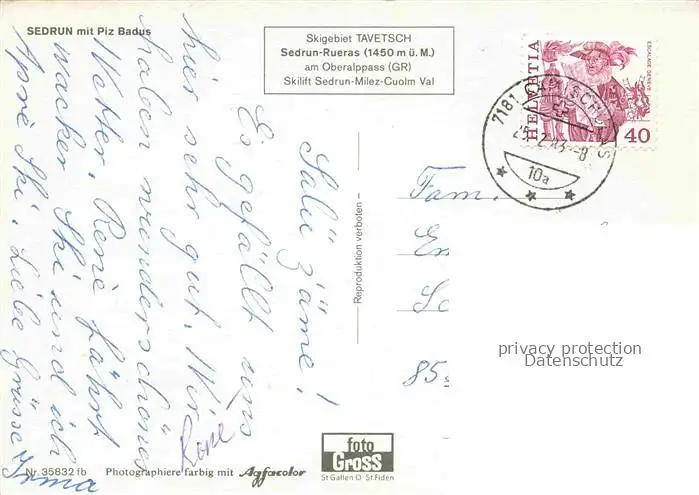 SEDRUN mit Piz Badus
Skigebiet TAVETSCH
Sedrun-Rueras (1450 m ü. M.)
am Oberalppass (GR)
Skilift Sedrun-Milez-Cuolm Val
HELVETIA
ESCALADE GENEVE
40
7181
10a
Salü zäme!
Es gefällt uns
hier sehr gut. Wir
haben wunderschönes
Wetter. René fährt
wacker Ski und ich
Apré Ski. Liebe Grüsse
Irma
René
Fam.
85
Reproduktion verboten
privacy protection
Datenschutz
Nr. 35832 fb
Photographiere farbig mit Agfacolor
foto
Gross
St Gallen O St Fiden